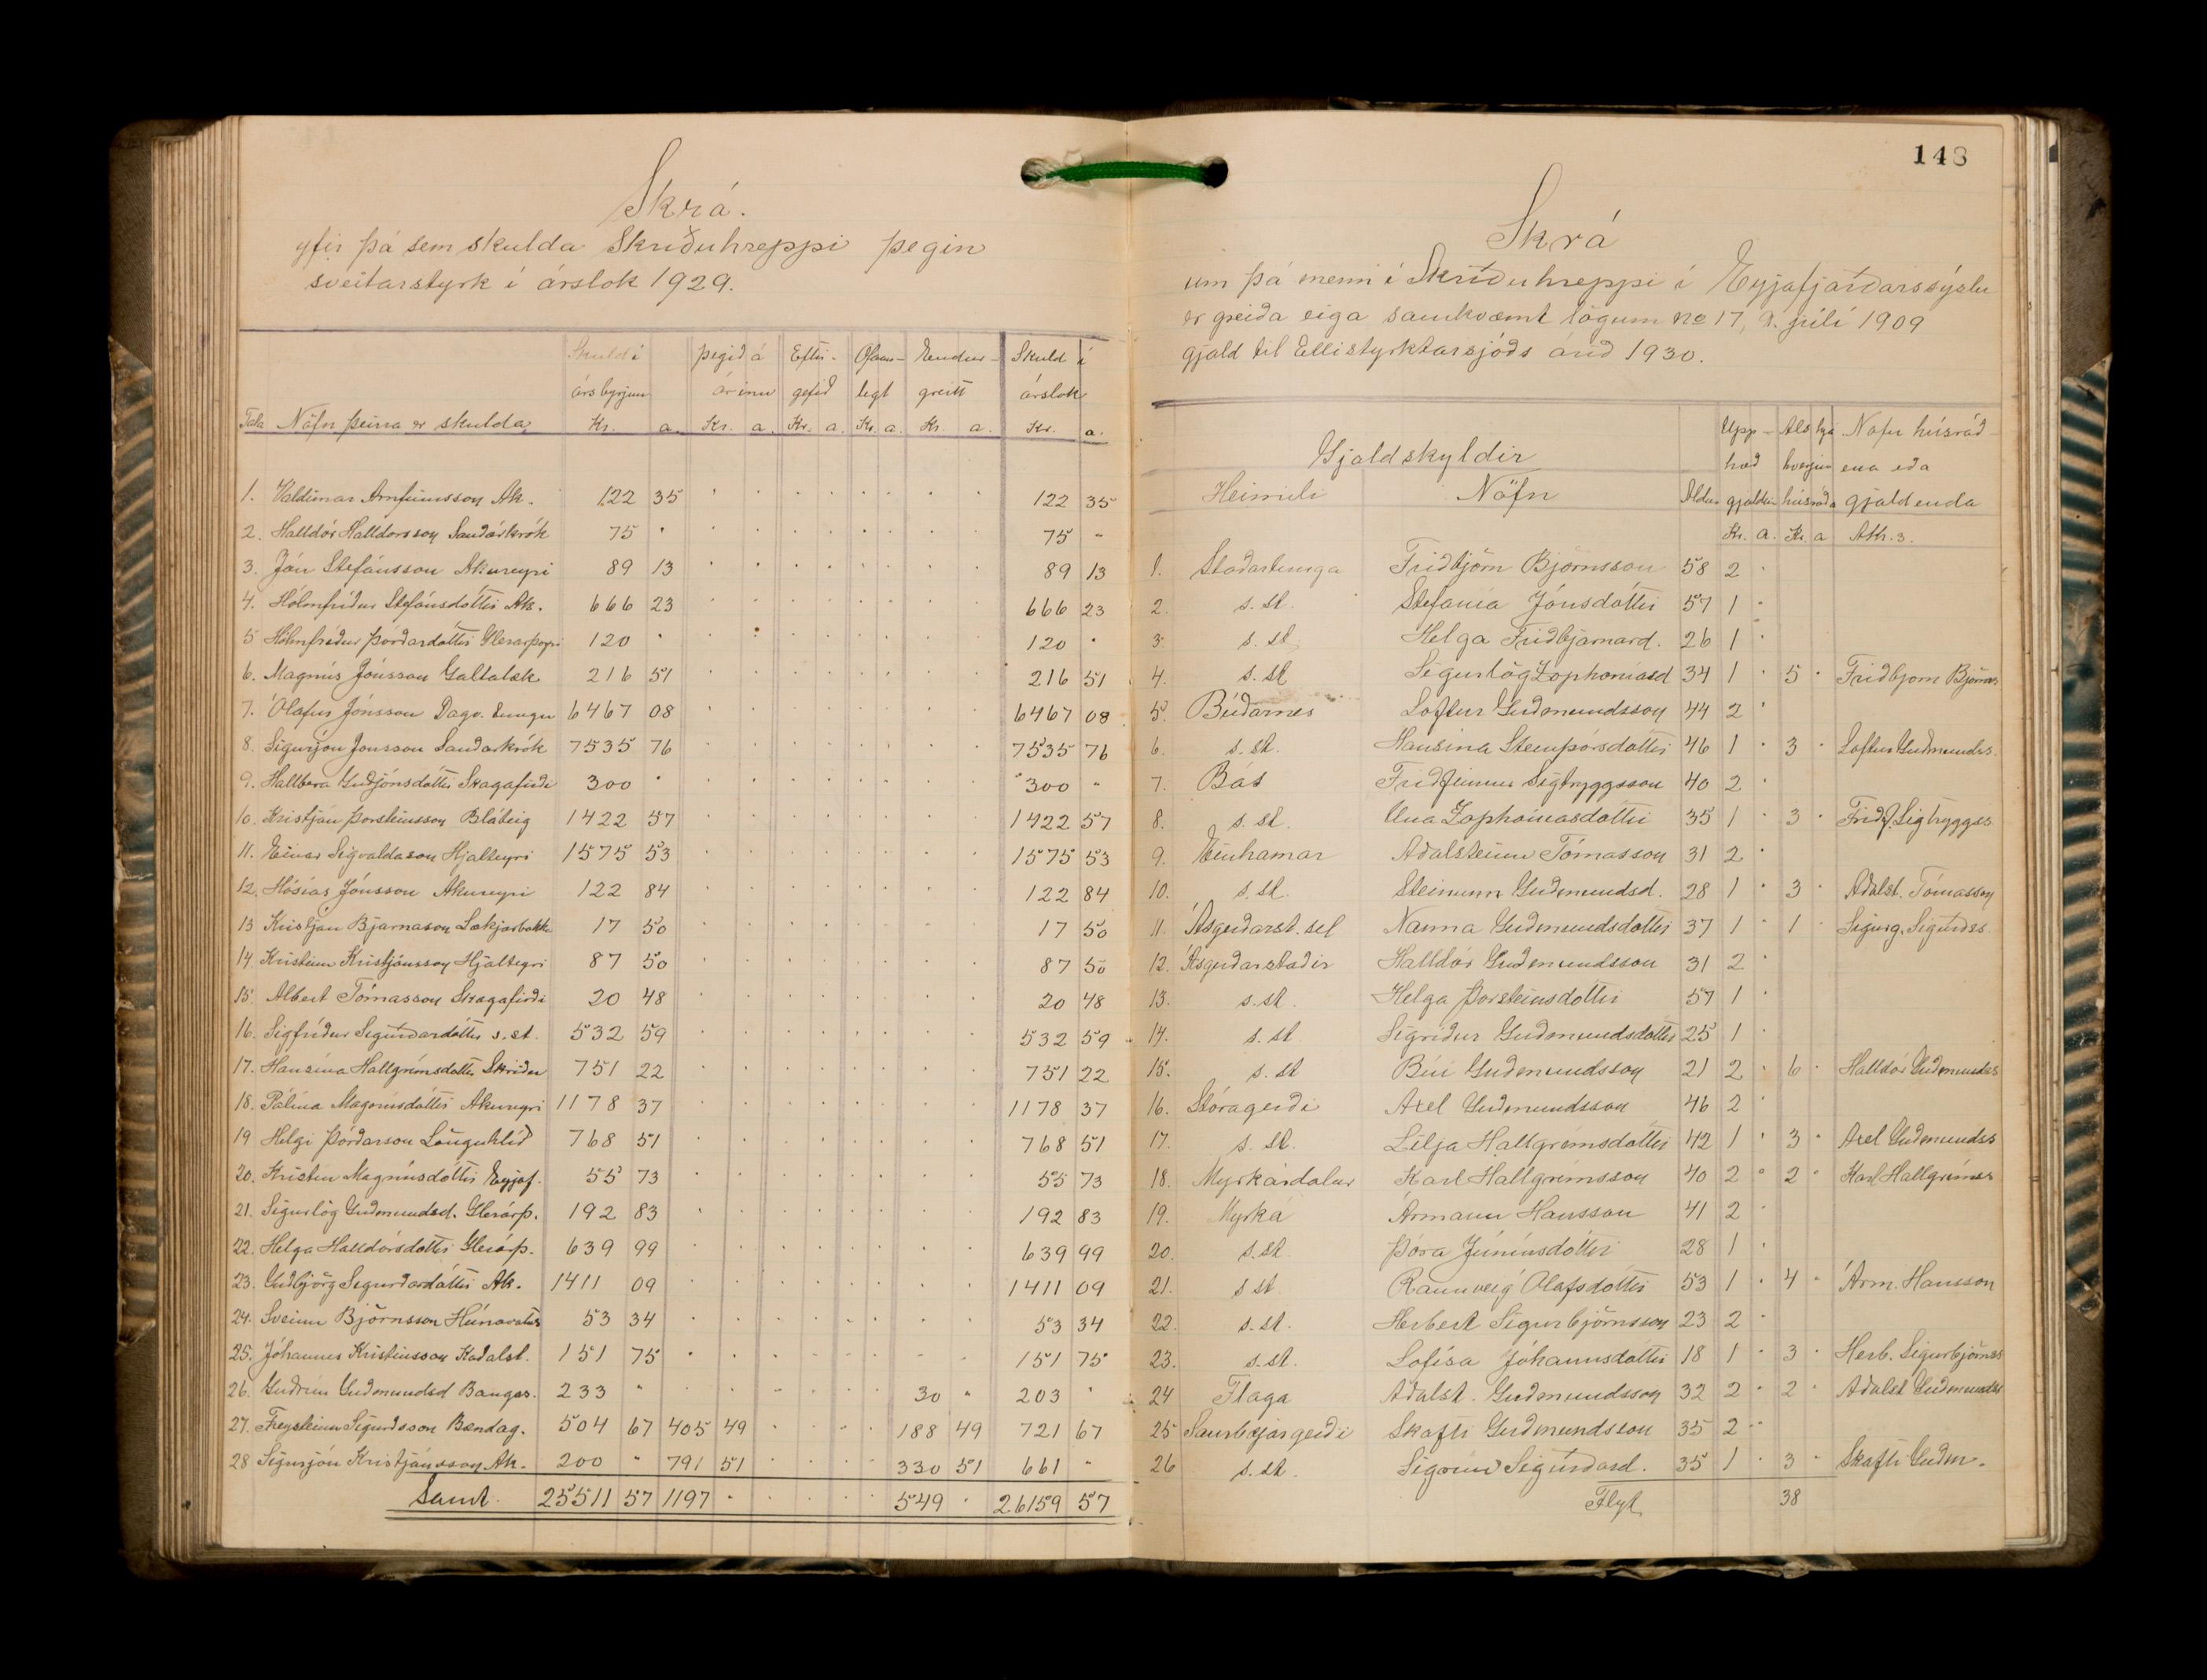 Skrá.
yfir þá sem skulda Skriðuhreppi þegin
sveitarstyrk í árslok 1929.
Skuld í þegið á Eftir- Ofan- Endur- Skuld í
ársbyrjun árinu gefið legt greitt árslok
Tala Nöfn þeirra er skulda Kr. a. Kr. a. Kr. a. Kr. a. Kr. a. Kr. a.
1. Valdimar Arnfinnsson Ak. 122 35 122 35
2. Halldór Halldorsson Sauðárkrók 75 " 75 "
3. Jón Stefánsson Akureyri 89 13 89 13
4. Hólmfríður Stefánsdóttir Ak. 666 23 666 23
5 Hólmfríður Þórðardóttir Glerárþorpi 120 " 120 "
6. Magnús Jónsson Galtalæk 216 51 216 51
7. Ólafur Jónsson Dagv.tungu 6467 08 6467 08
8. Sigurjón Jónsson Sauðarkrók 7535 76 7535 76
9. Hallbera Guðjónsdóttir Skagafirði 300 " 300 "
10. Kristján Þorsteinsson Bláteig 1422 57 1422 57
11. Einar Sigvaldason Hjalteyri 1575 53 1575 53
12. Hósías Jónsson Akureyri 122 84 122 84
13 Kristján Bjarnason Lækjarbakka 17 50 17 50
14. Kristinn Kristjánsson Hjalteyri 87 50 87 50
15. Albert Tómasson Skagafirði 20 48 20 48
16. Sigfríður Sigurðardóttir s.st. 532 59 532 59
17. Hansína Hallgrímsdóttir Skriðu 751 22 751 22
18. Pálína Magnúsdóttir Akureyri 1178 37 1178 37
19 Helgi Þórðarson Lönguhlíð 768 51 768 51
20. Kristín Magnúsdóttir Eyjaf. 55 73 55 73
21. Sigurlög Guðmundsd. Glerárþ. 192 83 192 83
22. Helga Halldórsdóttir Glerárþ. 639 99 639 99
23. Guðbjörg Sigurðardóttir Ak. 1411 09 1411 09
24. Sveinn Björnsson Húnavatns 53 34 53 34
25. Jóhannes Kristinsson Kaðalst. 151 75 151 75
26. Guðrún Guðmundsd Baugas. 233 " 30 " 203 "
27. Freysteinn Sigurðsson Bændag. 504 67 405 49 188 49 721 67
28 Sigurjón Kristjánsson Ak. 200 " 791 51 330 51 661 "
Samt. 25511 57 1197 549 26159 57
148
Skrá
um þá menn í Skriðuhreppi í Eyjafjarðarsýslu
er greiða eiga samkvæmt lögum no 17, 9. júlí 1909
gjald til Ellistyrktarsjóðs árið 1930.
Gjaldskyldir Upp- Als hja Nöfn húsráð-
hæð hverjum enda eða
Heimili Nöfn Aldur gjaldsin húsráða gjaldenda
Kr. a. Kr. a Ath.s.
1. Staðartunga Friðbjörn Björnsson 58 2
2. s.st. Stefanía Jónsdóttir 57 1
3. s.st. Helga Friðbjarnard. 26 1
4. s.st Sigurlög Zophoníasd 34 1 5 Friðbjorn Björns.
5. Búðarnes Loftur Guðmundsson 44 2
6. s.st. Hansína Steinþórsdóttir 46 1 3 Loftur Guðmunds.
7. Bás Friðfinnur Sigtryggsson 40 2
8. s.st. Una Zophoníasdóttir 35 1 3 Friðf. Sigtryggss
9. Einhamar Aðalsteinn Tómasson 31 2
10. s.st. Steinunn Guðmundsd. 28 1 3 Aðalst. Tómasson
11. Ásgerðarst.sel Nanna Guðmundsdóttir 37 1 1 Sigurg. Sigurðss.
12. Ásgerðarstaðir Halldór Guðmundsson 31 2
13. s.st. Helga Þorsteinsdóttir 57 1
14. s.st Sigríður Guðmundsdóttir 25 1
15. s.st Búi Guðmundsson 21 2 6 Halldór Guðmundss
16. Stóragerði Axel Guðmundsson 46 2
17. s.st. Lilja Hallgrímsdóttir 42 1 3 Axel Guðmundss
18. Myrkárdalur Karl Hallgrímsson 40 2 2 Karl Hallgrímss
19. Myrká Ármann Hansson 41 2
20. s.st. Þóra Júníusdóttir 28 1
21. s st Rannveig Ólafsdóttir 53 1 4 Árm. Hansson
22. s.st. Herbert Sigurbjörnsson 23 2
23. s.st. Lofísa Jóhannsdóttir 18 1 3 Herb. Sigurbjörnss
24 Flaga Aðalst. Guðmundsson 32 2 2 Aðalst Guðmundss
25 Saurbæjargerði Skafti Guðmundsson 35 2
26 s.st. Sigrún Sigurðard. 35 1 3 Skafti Guðm.
Flyt 38